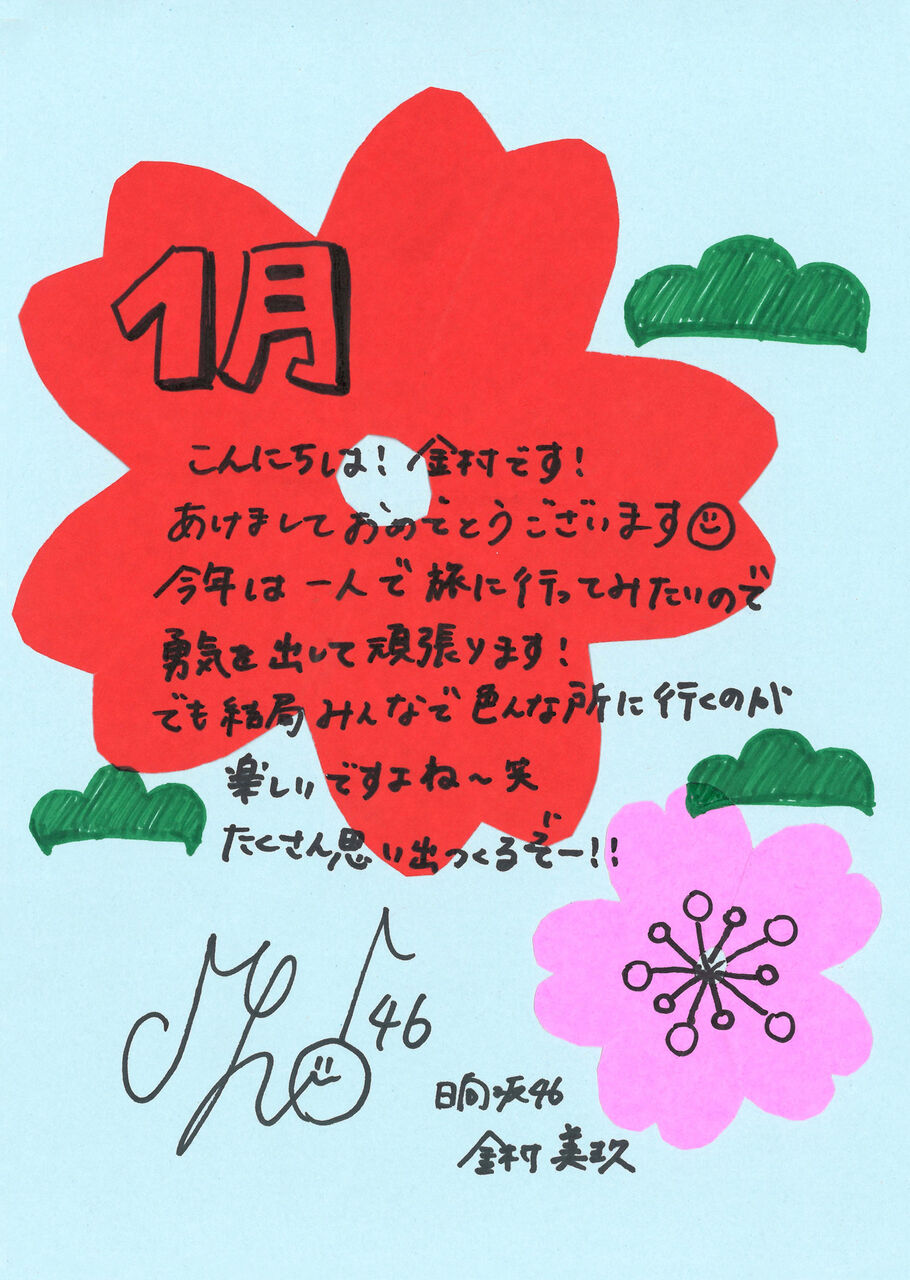 1月
こんにちは！金村です！
あけましておめでとうございます
今年は一人で旅に行ってみたいので
勇気を出して頑張ります！
でも結局みんなで色んな所に行くのが
楽しいですよね〜笑
たくさん思い出つくるぞー!!
46
日向坂46
金村美玖